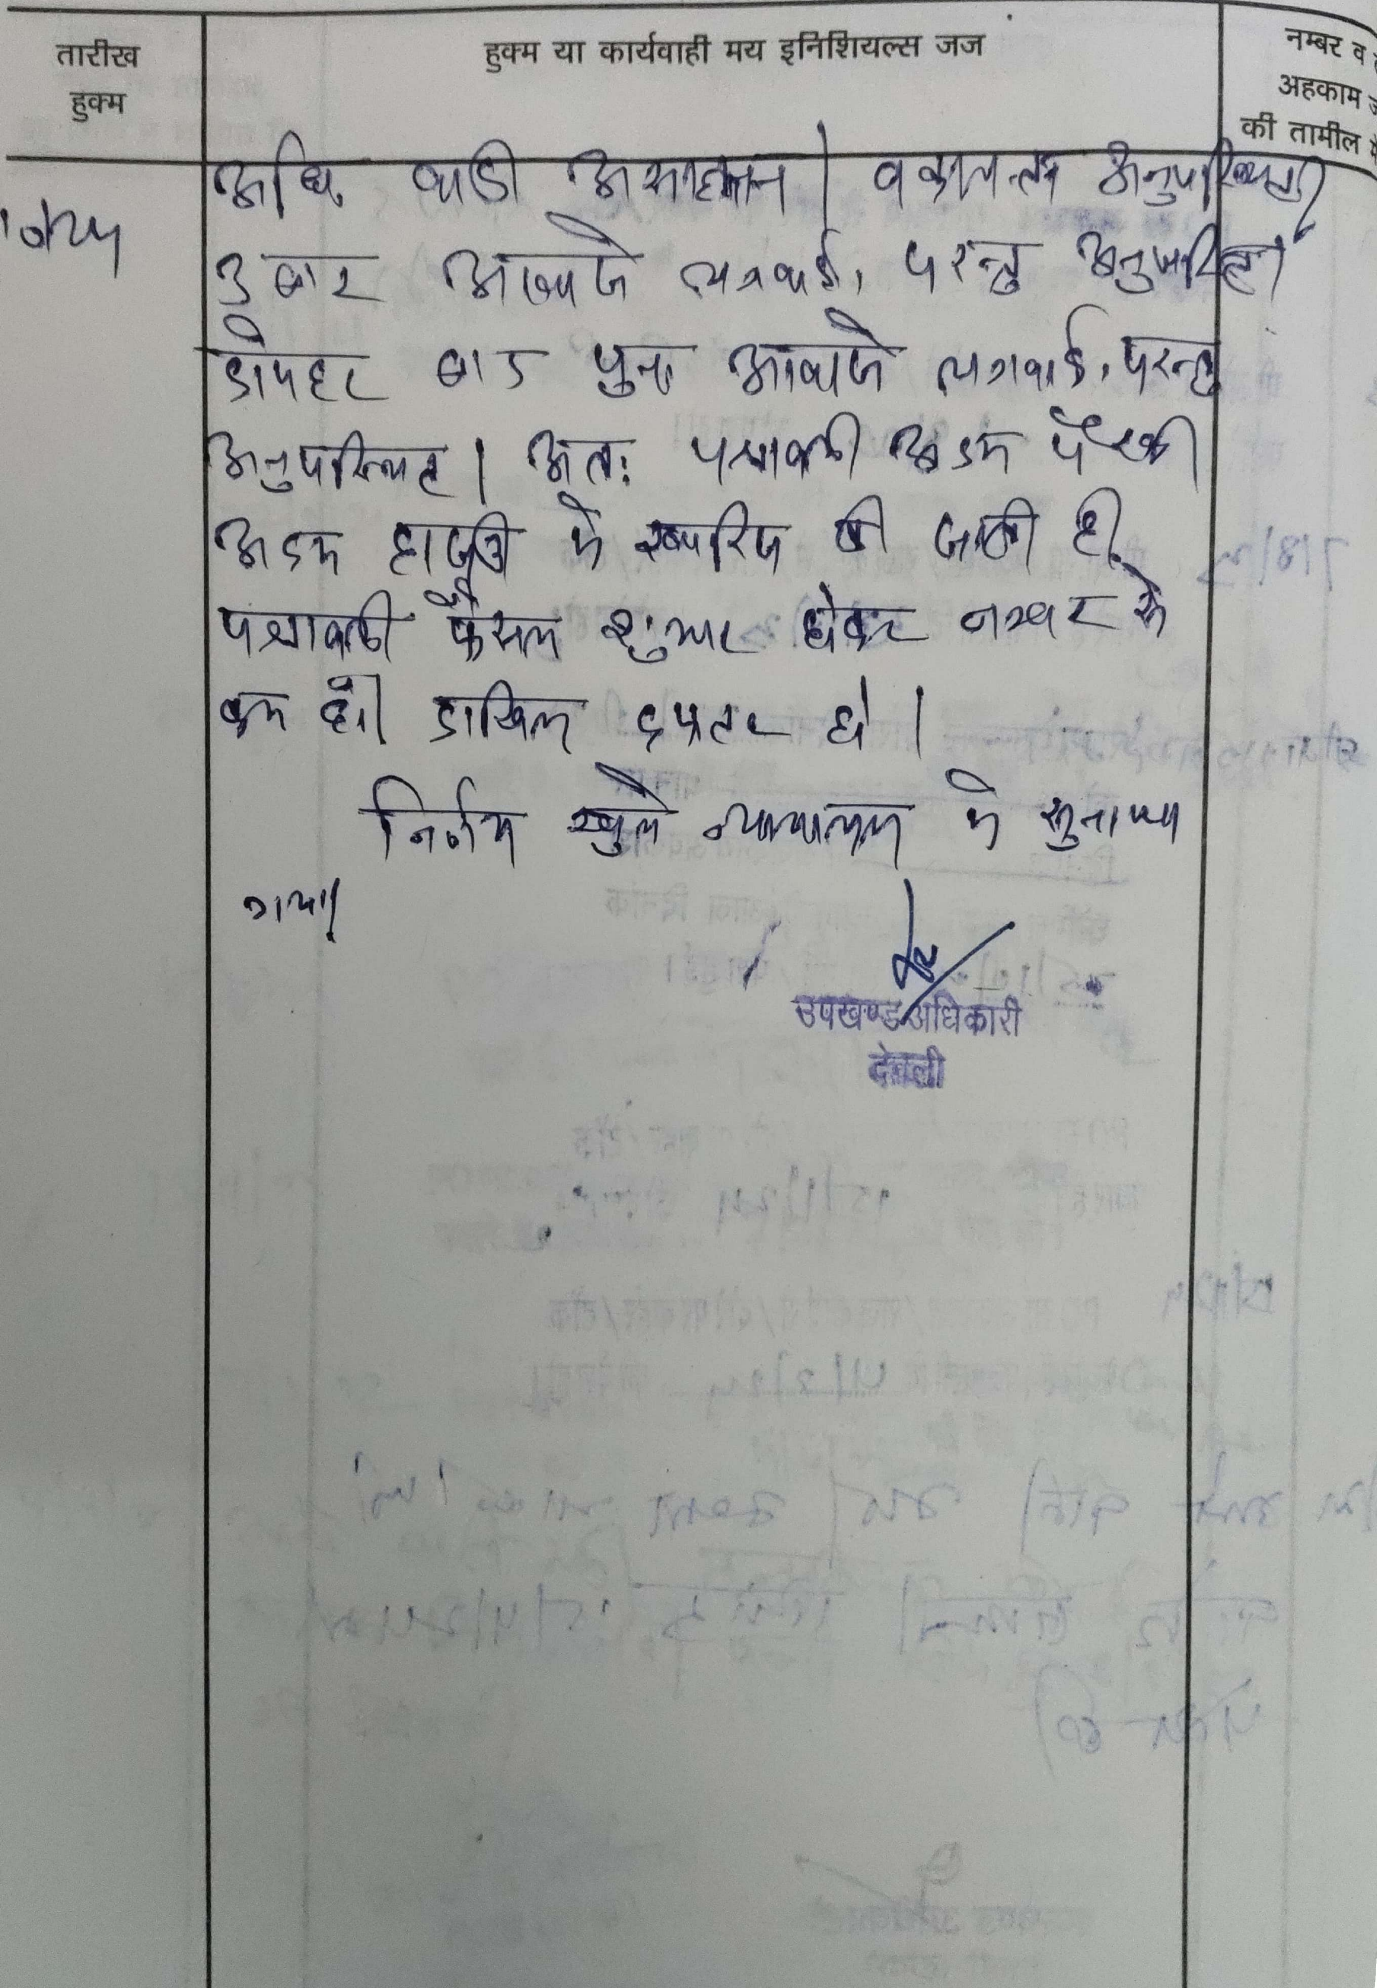 तारीख
हुक्म
हुक्म या कार्यवाही मय इनिशियल्स जज
नम्बर व
अहकाम
की तामील
अधि. वादी अनुपस्थित।
3 बार आवाजे लगवाई, परन्तु अनुपस्थित।
दोपहर बाद पुनः आवाजे लगवाई, परन्तु
अनुपस्थित। अतः पत्रावली अदम पैरवी
अदम हाजरी मे खारिज की जाती है।
पत्रावली फैसल शुमार होकर नम्बर से
कम हो। दाखिल दफ्तर हो।
निर्णय खुले न्यायालय मे सुनाया
गया।
उपखण्ड अधिकारी
देवली